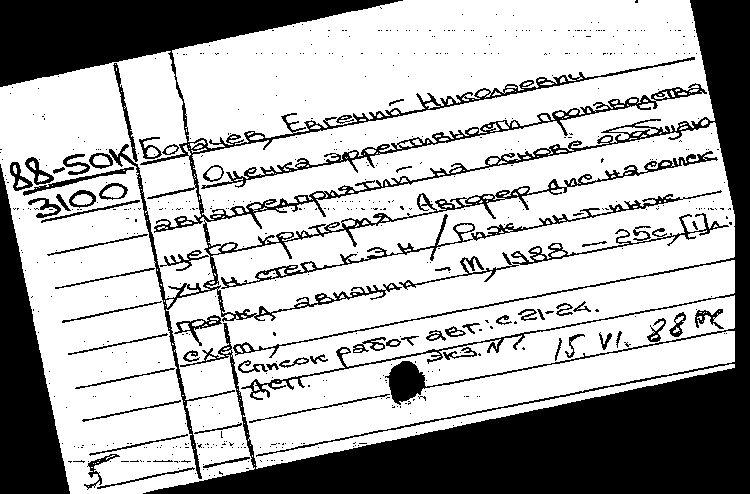 88-50К
3100
Богачев, Евгений Николаевич
Оценка эффективности производства
авиапредприятий на основе обобщаю-
щего критерия: Автореф дис. на соиск
учен. степ. к.э.н / Риж. ин-т инж.
гражд. авиации - М, 1988. - 25с, [1]л.:
схем.;
Список работ авт.: с. 21-24.
Деп. экз. № 15. VI. 88
5